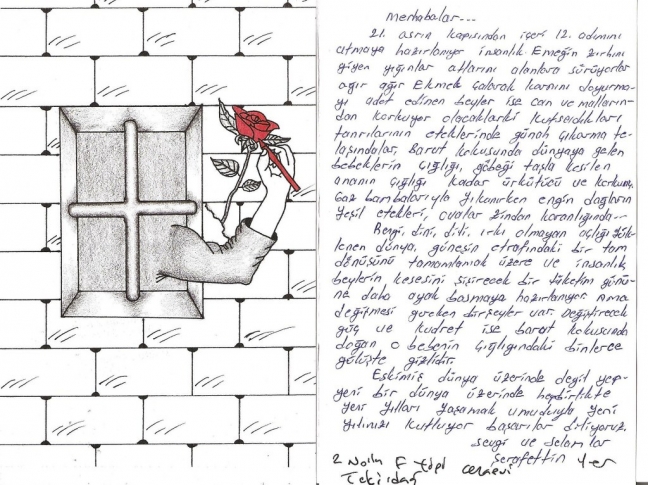 merhabalar...
21. asrın kapısından içeri 12. adımını
atmaya hazırlanıyor insanlık. Emeğin zırhını
giyen yığınlar atlarını alanlara sürüyorlar
ağır ağır Ekmek çalarak karnını doyurma-
yı adet edinen beyler ise can ve mallarırın-
dan korkuyor olacaklarki kutsadıkları
tanrılarının eteklerinde günah çıkarma te-
laşındalar. Barut kokusunda dünyaya gelen
bebeklerin çığlığı, göbeği taşla kesilen
ananın çığlığı kadar ürkütücü ve korkunç
Gaz bombalarıyla yıkanırken engin dağların
yeşil etekleri, ovalar zindan karanlığında...
Rengi, dini, dili, ırkı olmayan açlığı yük-
lenen dünya, güneşin etrafındaki bir tam
dönüşünü tamamlamak üzere ve insanlık
beylerin kesesini şişirecek bir tüketim günü-
ne daha ayak basmaya hazırlanıyor Ama
değişmesi gereken birşeyler var. Değiştirecek
güç ve kudret ise barut kokusunda
doğan o bebenin çığlığındaki binlerce
gülüşte gizlidir.
Eskimiş dünya üzerinde değil yep-
yeni bir dünya üzerinde hepbirlikte
yeni yılları yaşamak umuduyla yeni
yılınızı kutluyor başarılar diliyoruz.
sevgi ve selamlar
Şerafettin
2 Nolu F tipi cezaevi
Tekirdağ